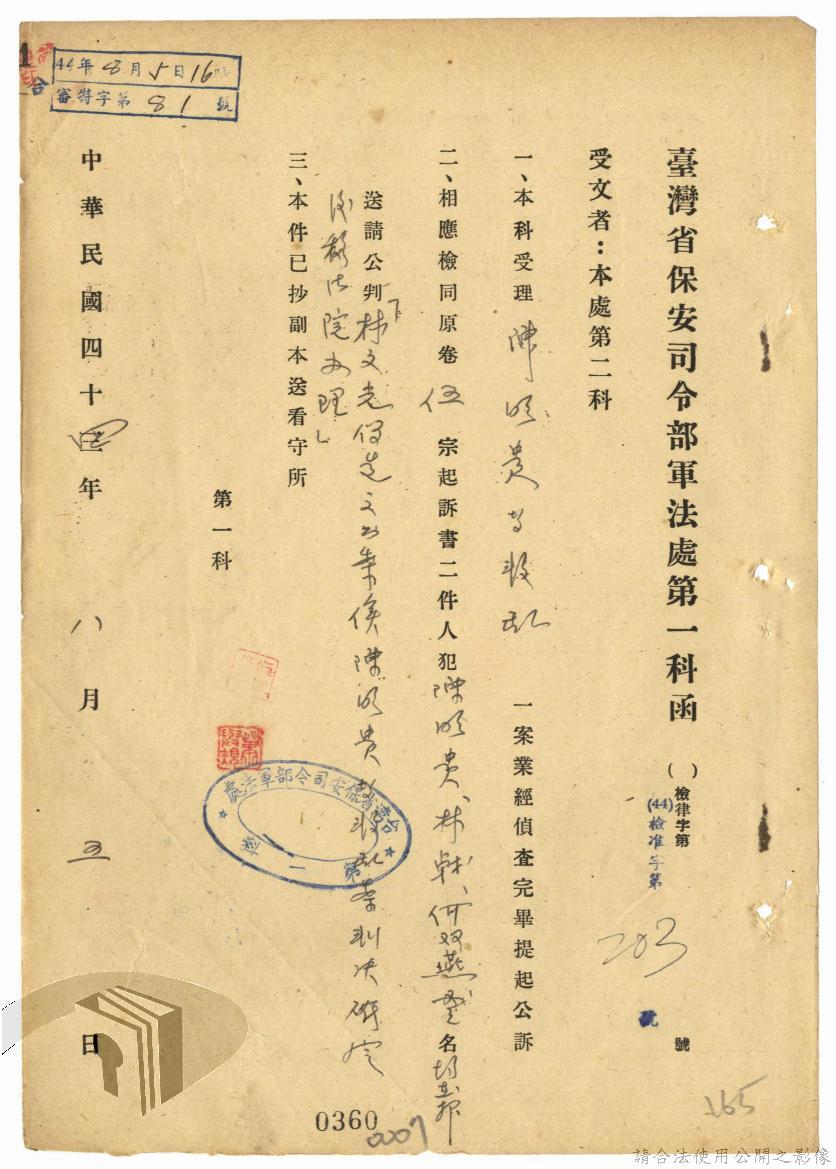 臺灣省保安司令部軍法處第一科函
( )檢律字第 號
(44)檢准字第 203 號
受文者：本處第二科
一、本科受理 陳明貴等叛亂 一案業經偵查完畢提起公訴
二、相應檢同原卷 伍 宗起訴書二件人犯 陳明貴、林 、何双燕 名
送請公判「林文光 陳明貴等叛亂案判決確定
後移法院办理」
三、本件已抄副本送看守所
第一科
中華民國四十四年 八 月 五 日
44年8月5日16時
審特字第 81 號
台灣省保安司令部軍法處
第一科
0360
0007
165
請合法使用公開之影像